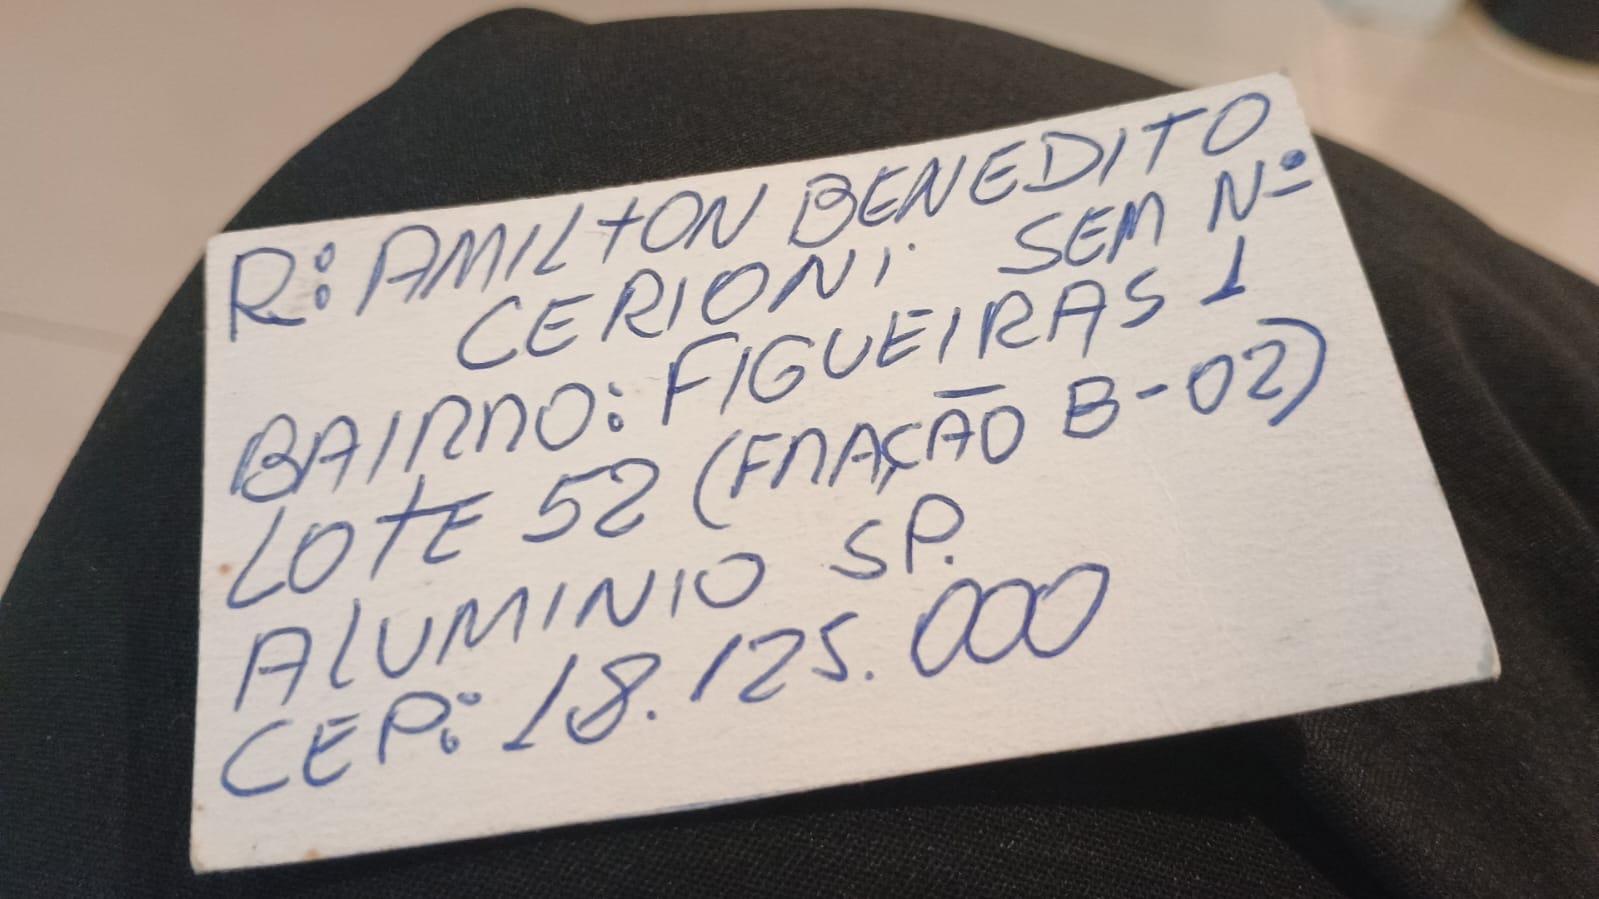 R: AMILTON BENEDITO
CERIONI SEM Nº
BAIRRO: FIGUEIRAS 1
LOTE 52 (FRAÇÃO B-02)
ALUMINIO SP.
CEP: 18.125.000